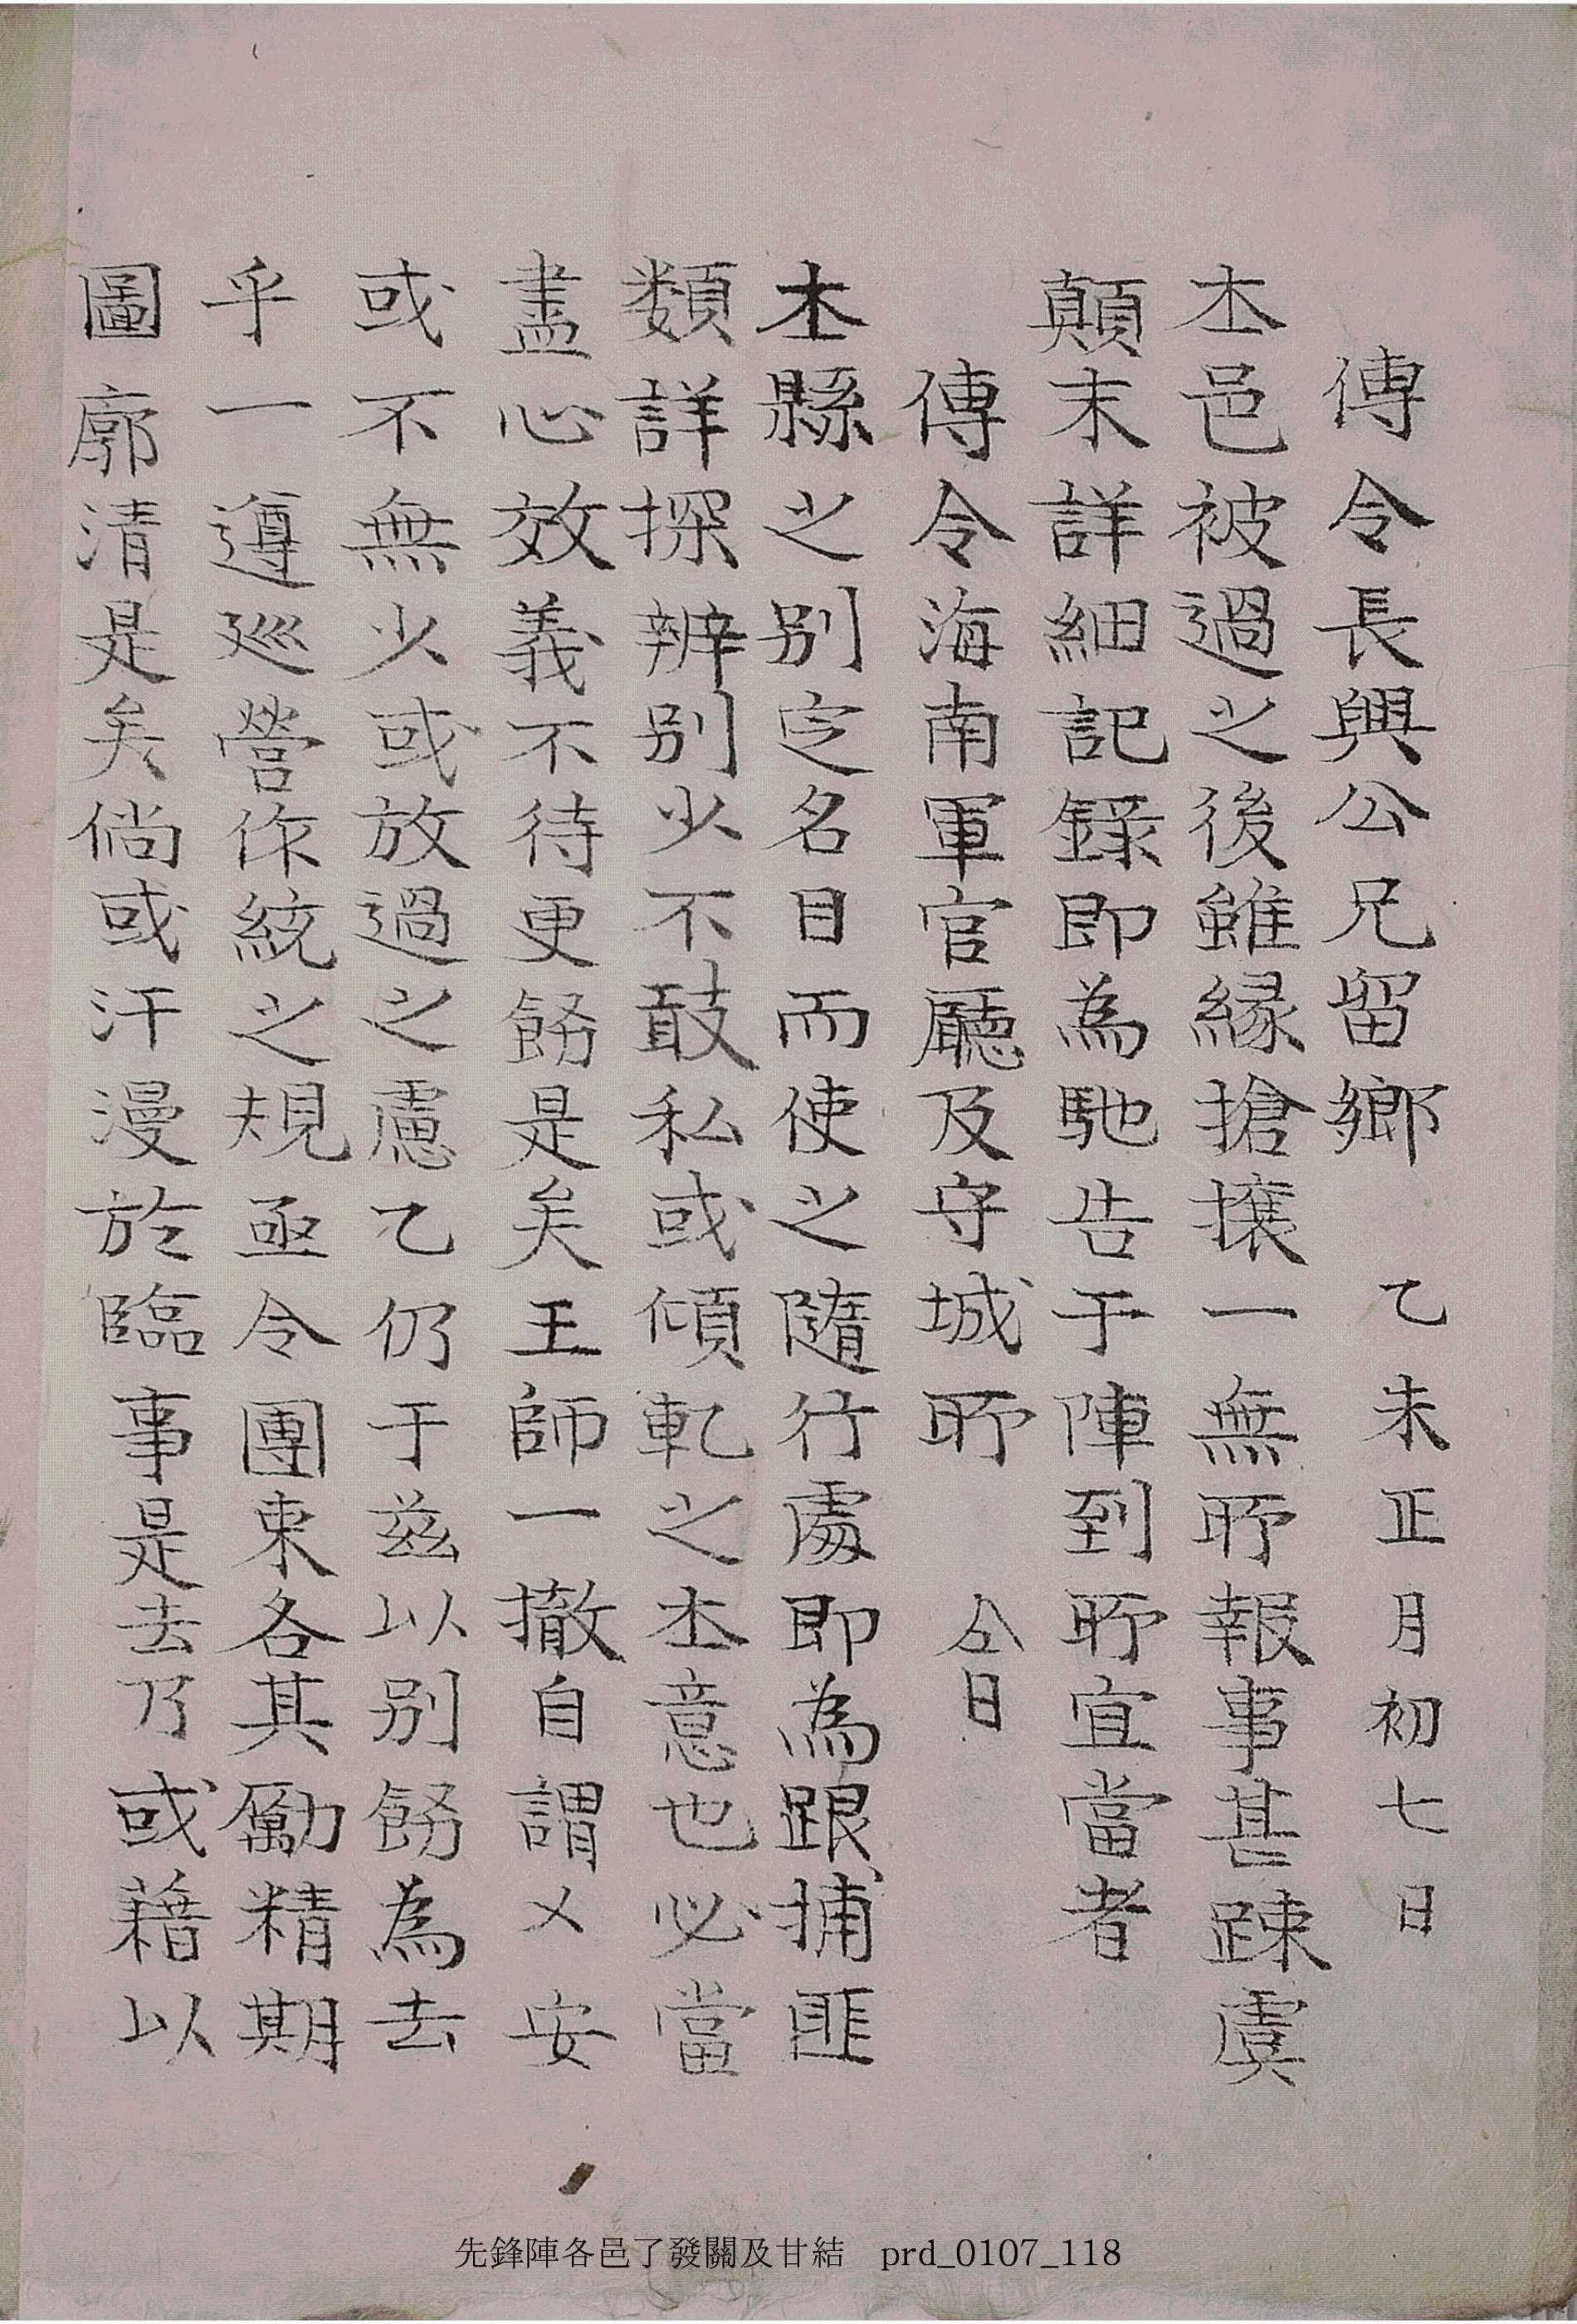 傳令長興公兄留鄉　乙未正月初七日
本邑被過之後雖緣搶攘一無所報事甚踈虞
顚末詳細記錄卽爲馳告于陣到所宜當者
傳令海南軍官廳及守城所　仝日
本縣之別定名目而使之隨行處卽爲跟捕匪
類詳探辨別少不敢私或傾軋之本意也必當
盡心效義不待更飭是矣王師一撤自謂乂安
或不無少或放過之慮乙仍于玆以別飭爲去
乎一遵巡營作統之規亟令團束各其勵精期
圖廓淸是矣倘或汗漫於臨事是去乃或藉以
先鋒陣各邑了發關及甘結　prd_0107_118